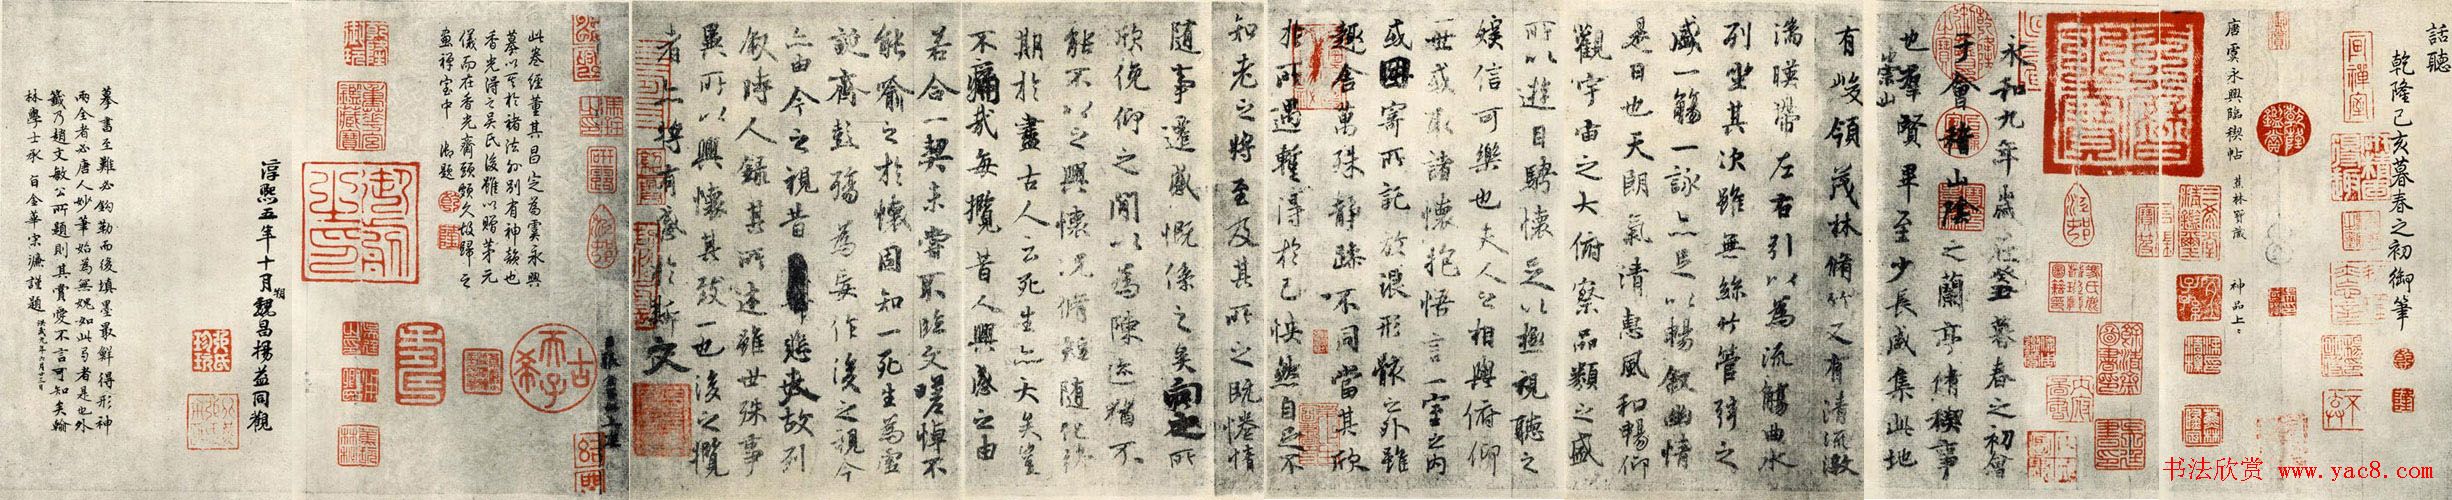 話聽
乾隆己亥暮春之初御筆
唐虞永興臨禊帖
神品上上
永和九年歲在癸丑暮春之初會
于會稽山陰之蘭亭脩稧事
也羣賢畢至少長咸集此地
崇山
有峻領茂林脩竹又有清流激
湍暎帶左右引以為流觴曲水
列坐其次雖無絲竹管弦之
盛一觴一詠亦足以暢叙幽情
是日也天朗氣清惠風和暢仰
觀宇宙之大俯察品類之盛
所以遊目騁懷足以極視聽之
娛信可樂也夫人之相與俯仰
一世或取諸懷抱悟言一室之內
或因寄所託放浪形骸之外雖
趣舍萬殊静躁不同當其欣
於所遇暫得於己怏然自足不
知老之將至及其所之既惓情
隨事遷感慨係之矣向之所
欣俛仰之閒以為陳迹猶不
能不以之興懷況脩短隨化終
期於盡古人云死生亦大矣豈
不痛哉每攬昔人興感之由
若合一契未嘗不臨文嗟悼不
能喻之於懷固知一死生為虛
誕齊彭殤為妄作後之視今
亦由今之視昔悲夫故列
叙時人錄其所述雖世殊事
異所以興懷其致一也後之攬
者亦將有感於斯文
古希天子
此卷經董其昌定為虞永興
摹以其於褚法外別有神韻也
香光得之吳氏後雖以贈茅元
儀而在香光齋頭頗久故歸之
畫禪室中 御題
淳熙五年十月朔魏昌楊益同觀
摹書至難必鈎勒而後填墨最鮮得形神
兩全者必唐人妙筆始為無媿如此卷者是也外
籤乃趙文敏公所題則其賞愛不言可知矣翰
林學士承旨金華宋濂謹題 洪武九年六月廿三日
书法欣赏 www.yac8.com